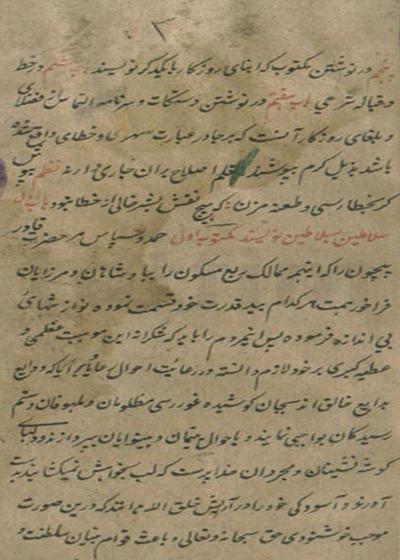 ۳
پنجم در نوشتن مکتوب که ابنای روزکار با یکدیکر نویسند باب ششم در خط
و قباله شرعی باب هفتم در نوشتن دستکات و سرنامه التماس از فضلای
و بلغای روزکار آنست که هر جا در عبارت سهوی و خطای واقع شده
باشد بذیل کرم بپوشند و قلم اصلاح بران جاری دارند نظم بپوش
کر بخطا رسی و طعنه مزن که هیچ نفس بشر خالی از خطا نبود باب اول
سلاطین بسلاطین نویسند مکتوب اول حمد و سپاس مر حضرت قادر
بیچون را که اینهمه ممالک ربع مسکون را بپادشاهان و مرزبان
فراخور همت هر کدام بید قدرت خود قسمت نموده نوازشهای
بی اندازه فرموده پس اینمردم را باید که شکرانه این موهبت عظمی و
عطیه کبری بر خود لازم دانسته در رعایت احوال رعایا برآیا که ودایع
بدایع خالق انس و جان کوشیده غوررسی مظلومان و ملهوفان و ستم
رسیدکان بواجبی نمایند و باحوال یتیمان و بینوایان بپردازند و دلهای
کوشه نشینان و مجردان خداپرست که لب بخواهش نمیکشایند بدست
آورند و آسودکی خود را در آرامش خلق الله دانند که درین صورت
موجب خوشنودی حق سبحانه و تعالی و باعث قوام بنیان سلطنت و